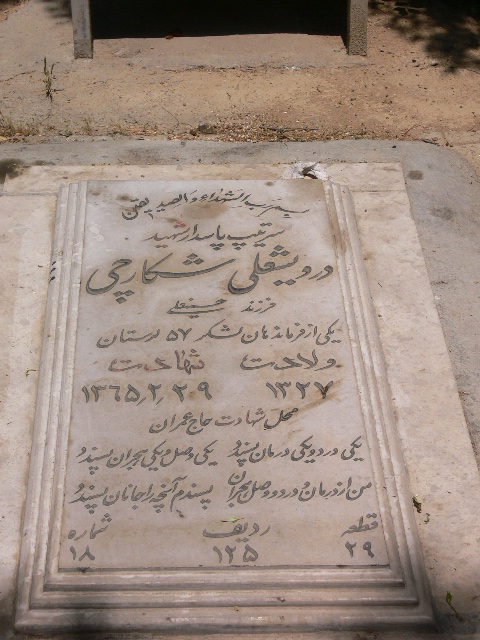 بسم رب الشهداء والصدیقین
سرتیپ پاسدار شهید
درویشعلی شکارچی
فرزند حسینعلی
یکی از فرماندهان لشکر ۵۷ لرستان
ولادت شهادت
۱۳۲۷ ۱۳۶۵٫۲٫۲۹
محل شهادت حاج عمران
یکی درد و یکی درمان پسندد یکی وصل و یکی هجران پسندد
من از درمان و درد و وصل و هجران پسندم آنچه را جانان پسندد
قطعه ردیف شماره
۲۹ ۱۲۵ ۱۸